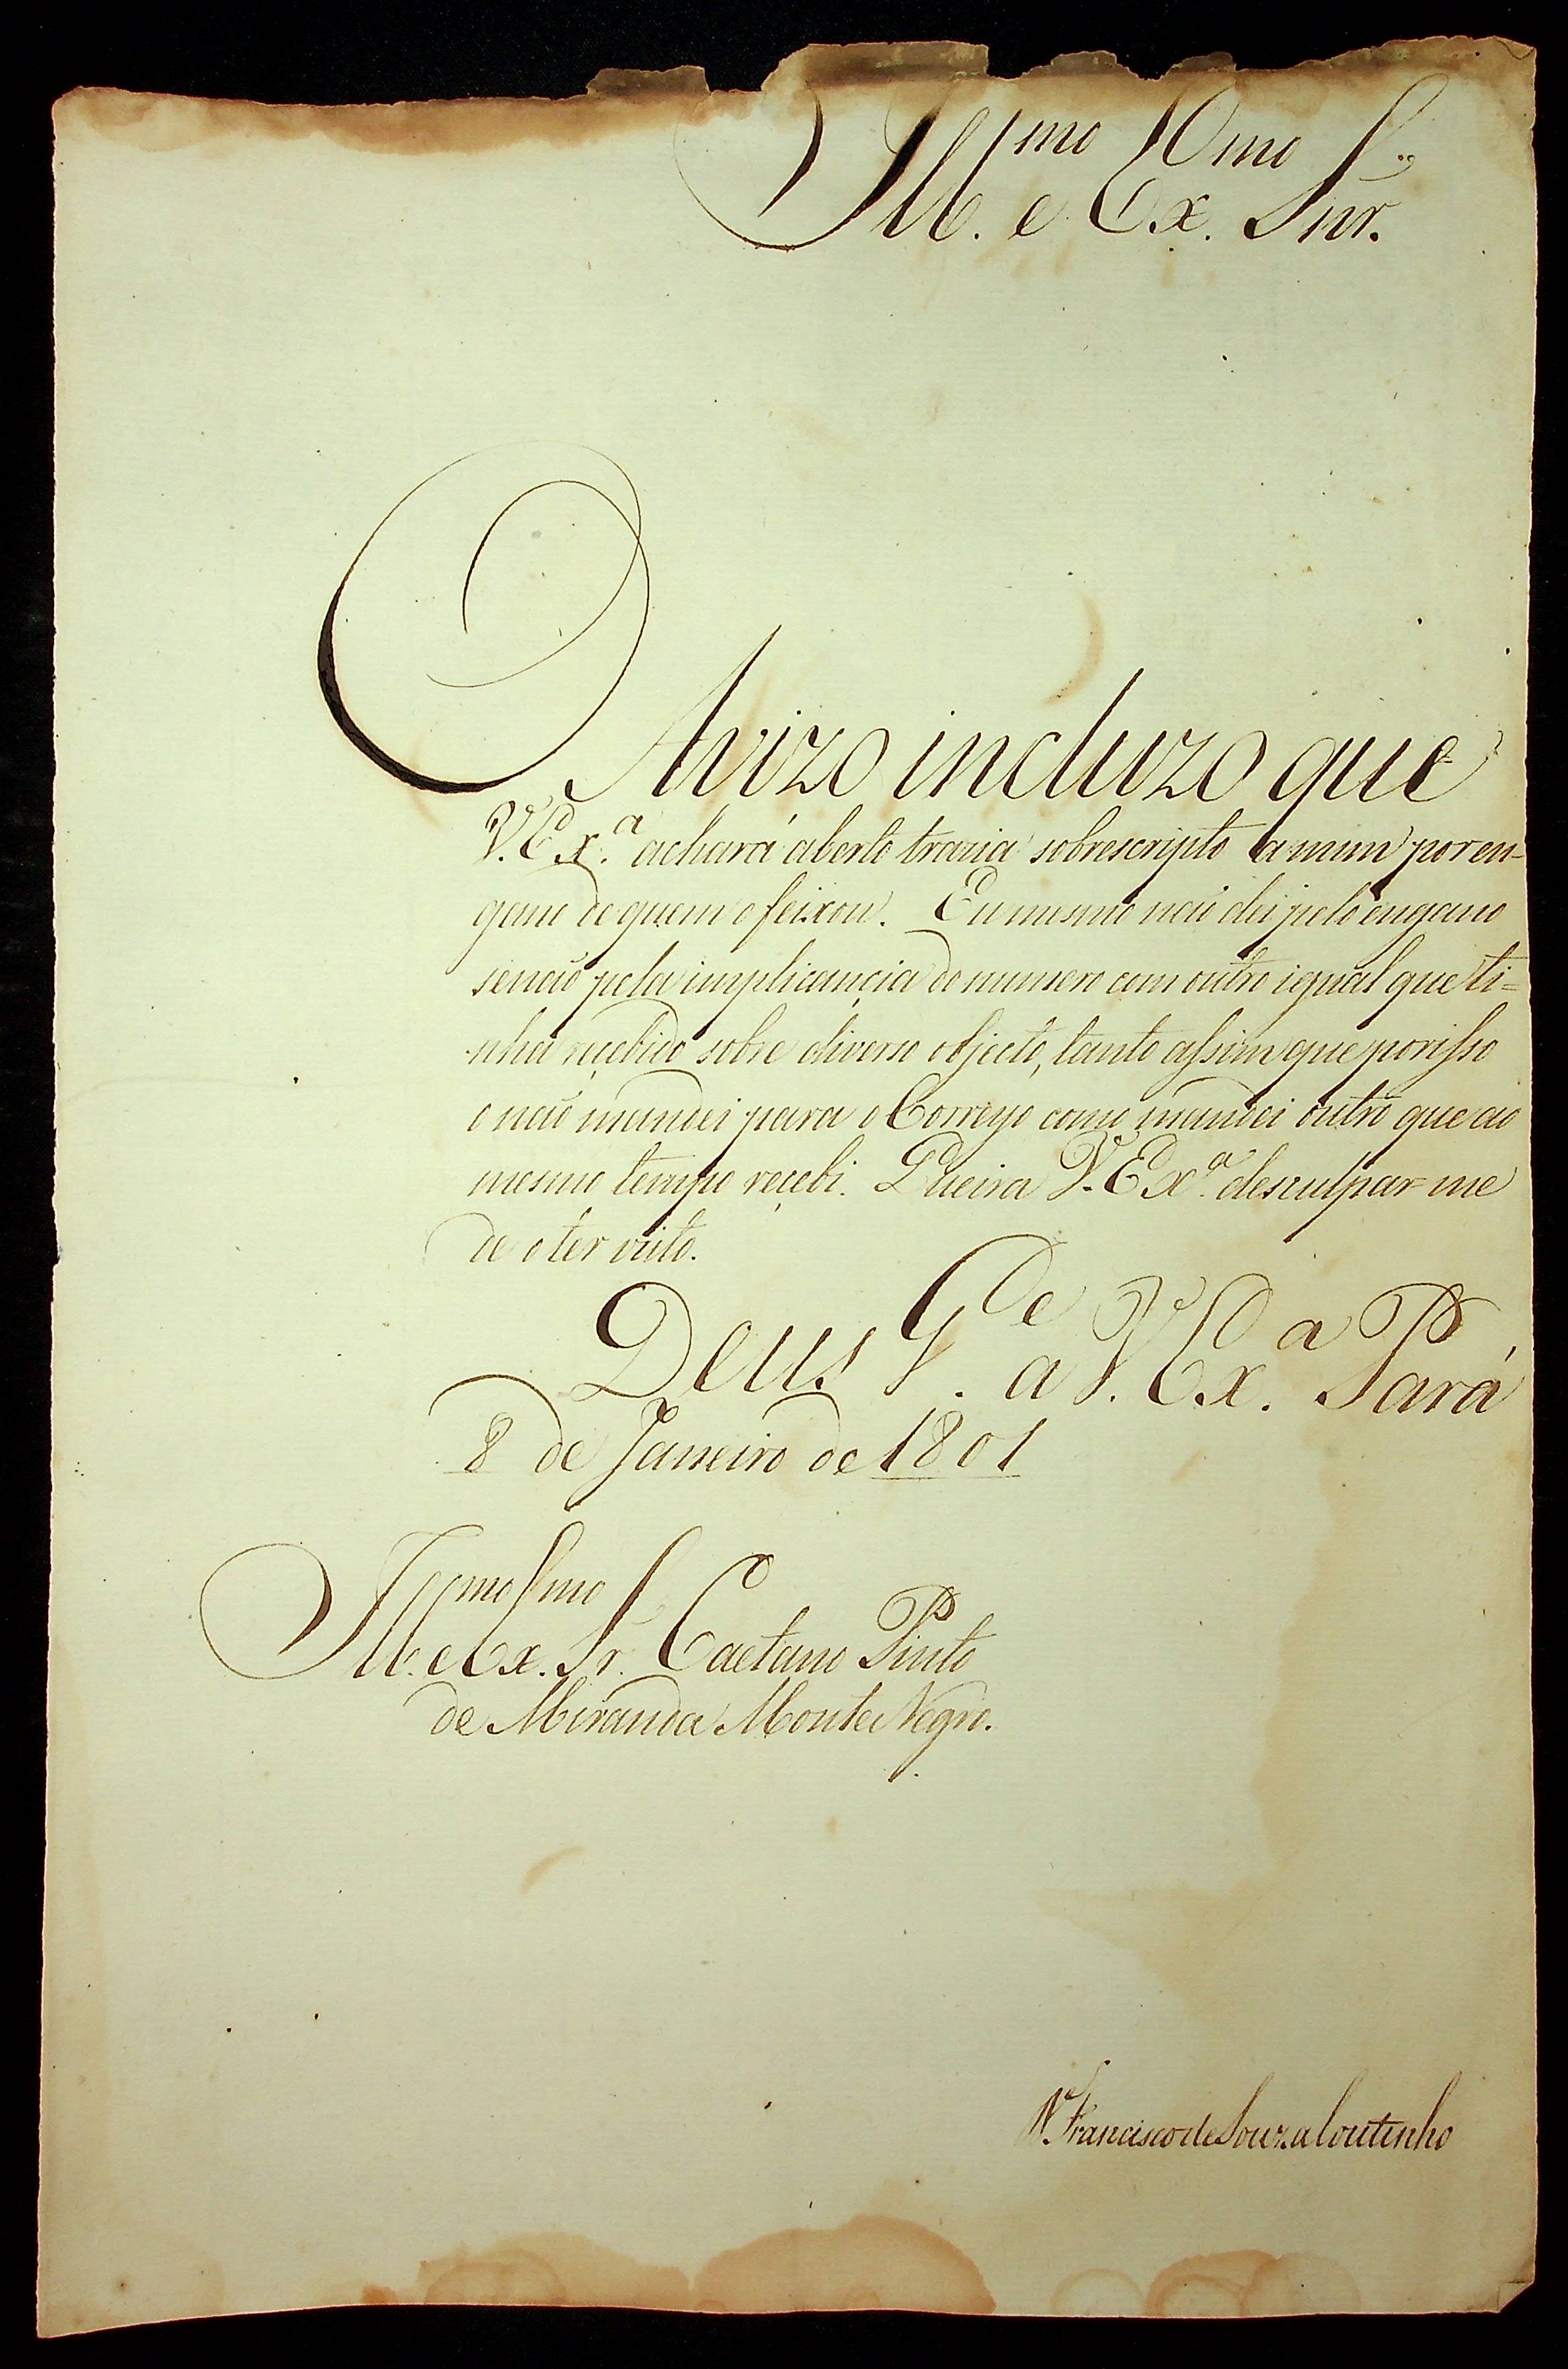 Ill.mo e Ex.mo Snr.
O Avizo incluzo que
V. Ex.ª achará aberto trazia sobrescripto a mim por en-
gano de quem o feixou. Eu mesmo não dei pelo engano
senão pela implicancia do numero com outro igual que ti=
nha recebido sobre diverso objecto, tanto assim que porisso
o não mandei para o Correyo como mandei outro que ao
mesmo tempo recebi. Queira V. Ex.ª desculpar me
de o ter visto.
Deus G.de a V. Ex.ª Pará
8 de Janeiro de 1801
Ill.mo e Ex.mo Sr. Caetano Pinto
de Miranda Monte Negro.
Francisco de Souza Coutinho